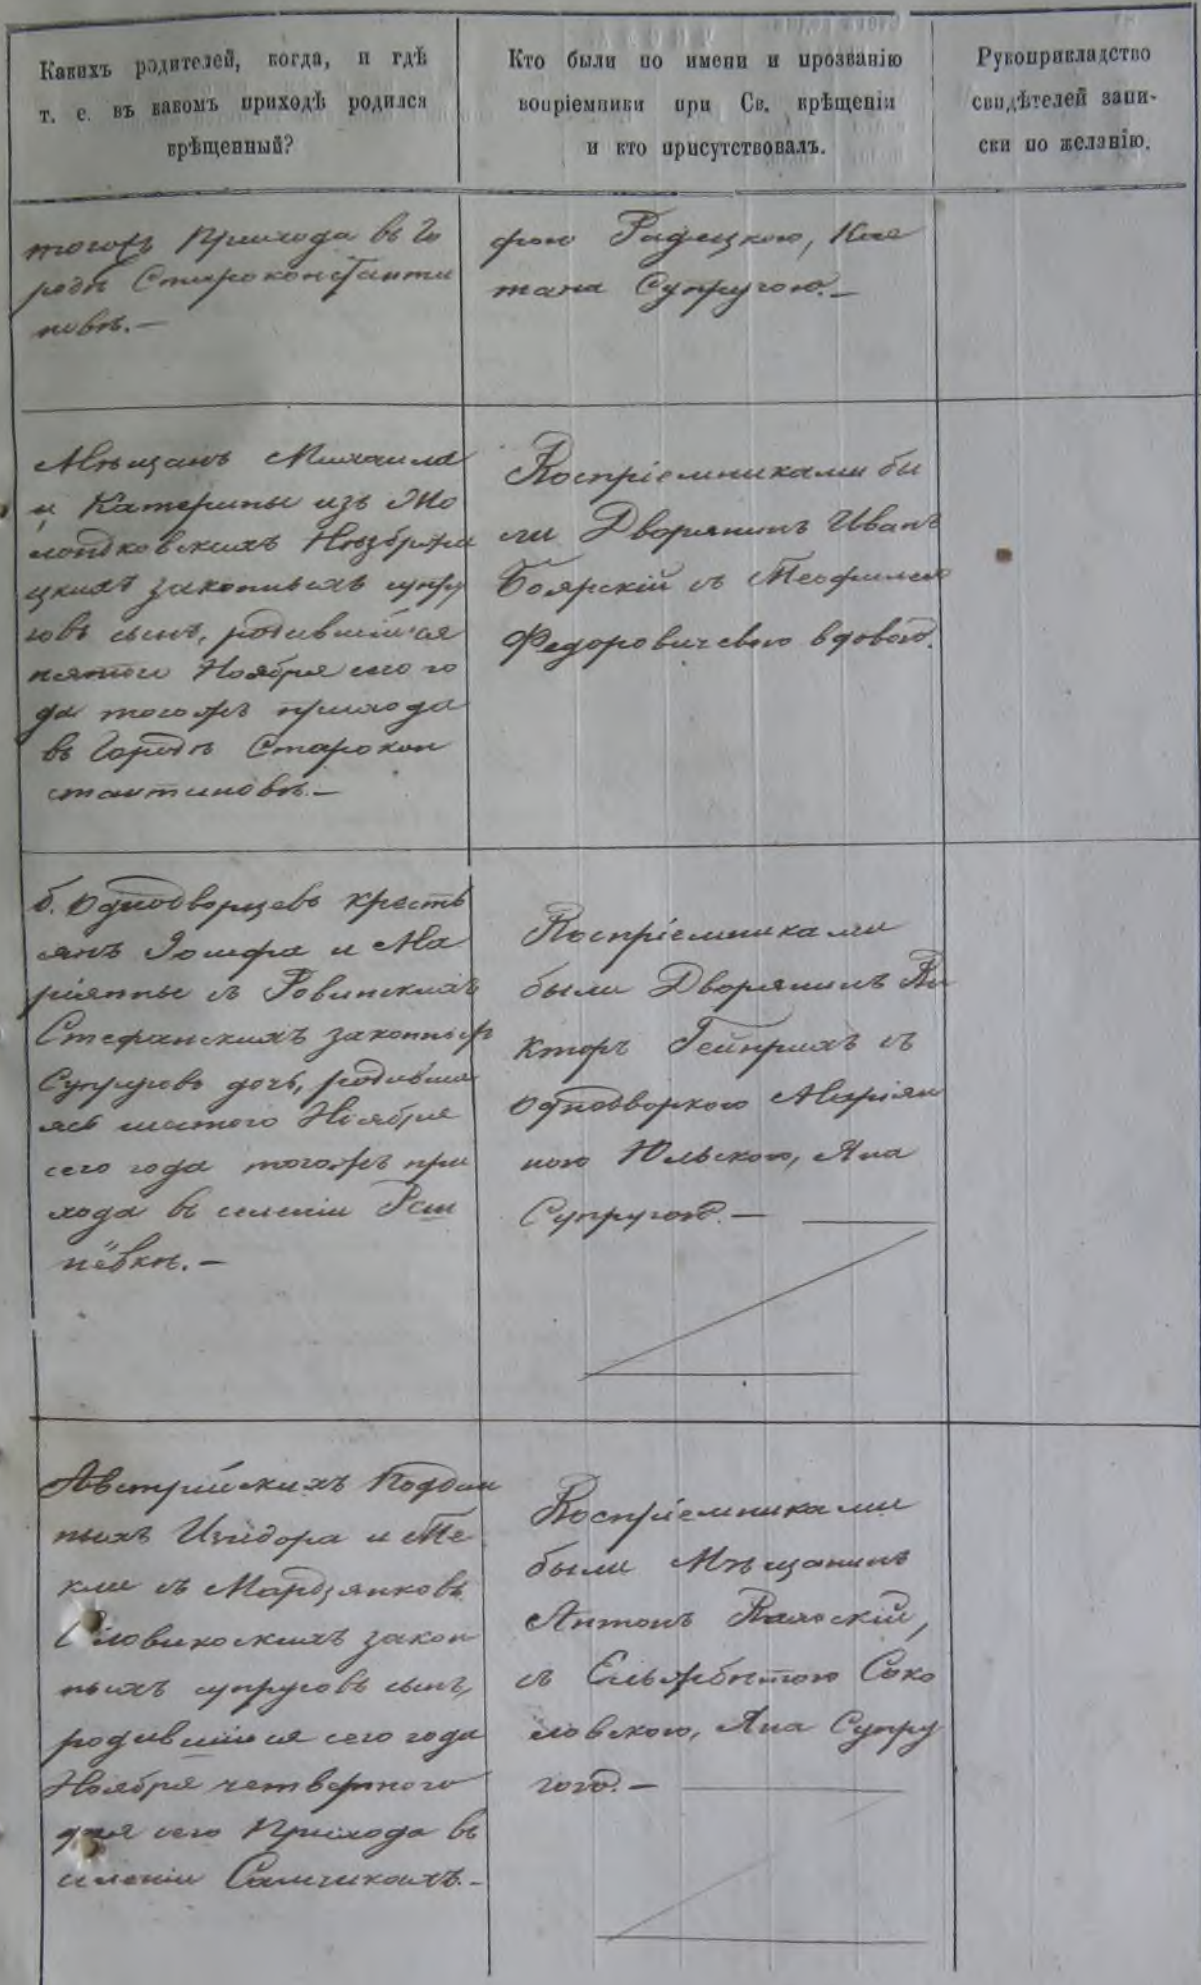 Какихъ родителей, когда, и гдѣ
т. е. въ какомъ приходѣ родился
крѣщенный?
Кто были по имени и прозванію
вопріемники при Св. крѣщеніи
и кто присутствовалъ.
Рукоприкладство
свидѣтелей запи-
ски по желанію.
тогожъ Прихода въ Го
родѣ Староконстанти
новѣ.—
фою Радецкою, Кае
тана Супругою.—
Мѣщанъ Михаила
и Катерины изъ
законныхъ супру
говъ сынъ, родившійся
пятого Ноября сего го
да тогожъ прихода
въ Городѣ Старокон
стантиновѣ.—
Воспріемниками бы
ли Дворянинъ Иванъ
Боярскій съ Теофилею
Федоровичевою вдовою.
б. Однодворцевъ кресть
янъ Іосифа и Ма
ріянны съ Ровинскихъ
Стефанскихъ законныхъ
Супруговъ дочь, родивша
яся шестого Ноября
сего года тогожъ при
хода въ селеніи Реш
нёвкѣ.—
Воспріемниками
были Дворянинъ Ви
кторъ Гейнрихъ съ
Однодворкою Маріян
ною Юльскою, Яна
Супругою.—
Австрійскихъ Поддан
ныхъ Изидора и Те
кли съ Мардзянковъ
закон
ныхъ супруговъ сынъ,
родившійся сего года
Ноября четвертного
дня сего Прихода въ
селеніи Самчикахъ.—
Воспріемниками
были Мѣщанинъ
Антонъ
съ Ельжбѣтою Соко
ловскою, Яна Супру
гою.—